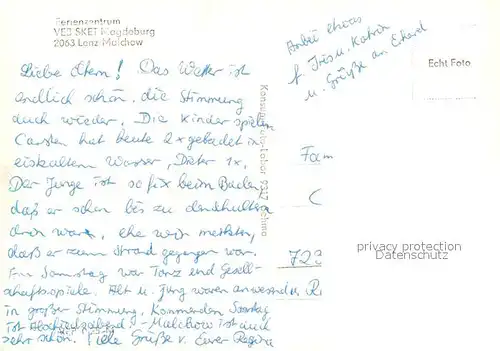 Ferienzentrum
VEB SKET Magdeburg
2063 Lenz-Malchow
Anbei etwas
f. Iris u. Katrin
u. Grüße an Ekard
Echt Foto
Liebe Eltern! Das Wetter ist
endlich schön, die Stimmung
auch wieder. Die Kinder spielen
Carsten hat heute 2x gebadet in
eiskaltem Wasser, Dieter 1x.
Der Junge ist so fix beim Baden,
daß er schon bis zu den
drin war, ehe wir merkten,
daß er zum Strand gegangen war.
Am Samstag war Tanz und Gesell-
schaftsspiele. Alt u. Jung waren anwesend u.
in großer Stimmung. Kommenden Sonntag
ist Abschiedsabend. Malchow ist auch
sehr schön. Viele Grüße v. Eurer Regina
Fam
C
723
R
privacy protection
Datenschutz